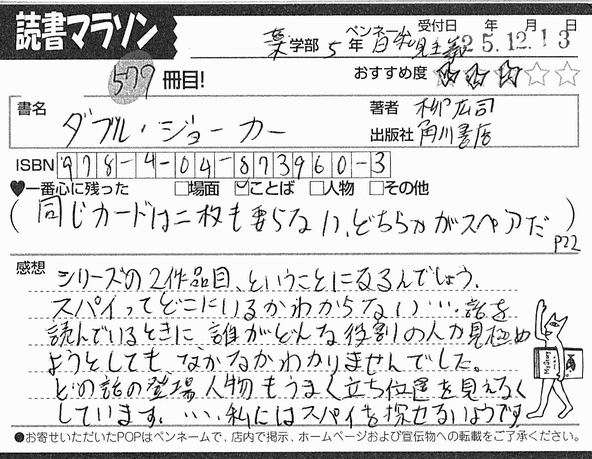 読書マラソン
薬学部 5年 ペンネーム 日和見主義 受付日 年 月 日
25.12.13
577冊目! おすすめ度 ★★★☆☆
書名 ダブル・ジョーカー
著者 柳広司
出版社 角川書店
ISBN 978-4-04-873960-3
♥一番心に残った □場面 ☑ことば □人物 □その他
(同じカードは二枚も要らない、どちらかがスペアだ) P22
感想
シリーズの2作品目、ということになるんでしょう。
スパイってどこにいるかわからない…。話を
読んでいるときに誰がどんな役割の人か見極め
ようとしても、なかなかわかりませんでした。
どの話の登場人物もうまく立ち位置を見えなく
しています。…私にはスパイを探せないようです。
●お寄せいただいたPOPはペンネームで、店内で掲示、ホームページおよび宣伝物への転載をご了承ください。